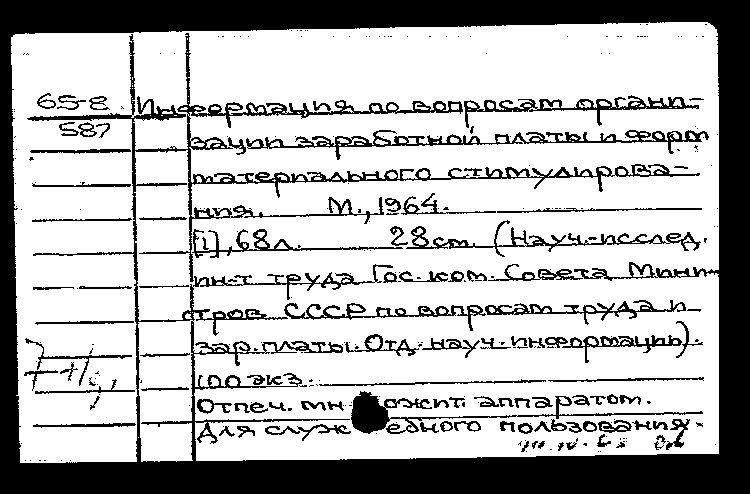 65-8 Информация по вопросам органи-
587
зации заработной платы и форм
материального стимулирова-
ния. М., 1964.
[1], 68 л. 28 см. (Науч.-исслед.
ин-т труда Гос. ком. Совета Мини-
стров СССР по вопросам труда и
зар. платы. Отд. науч. информации).
100 экз.
Отпеч. мн ожит. аппаратом.
Для служ ебного пользования.